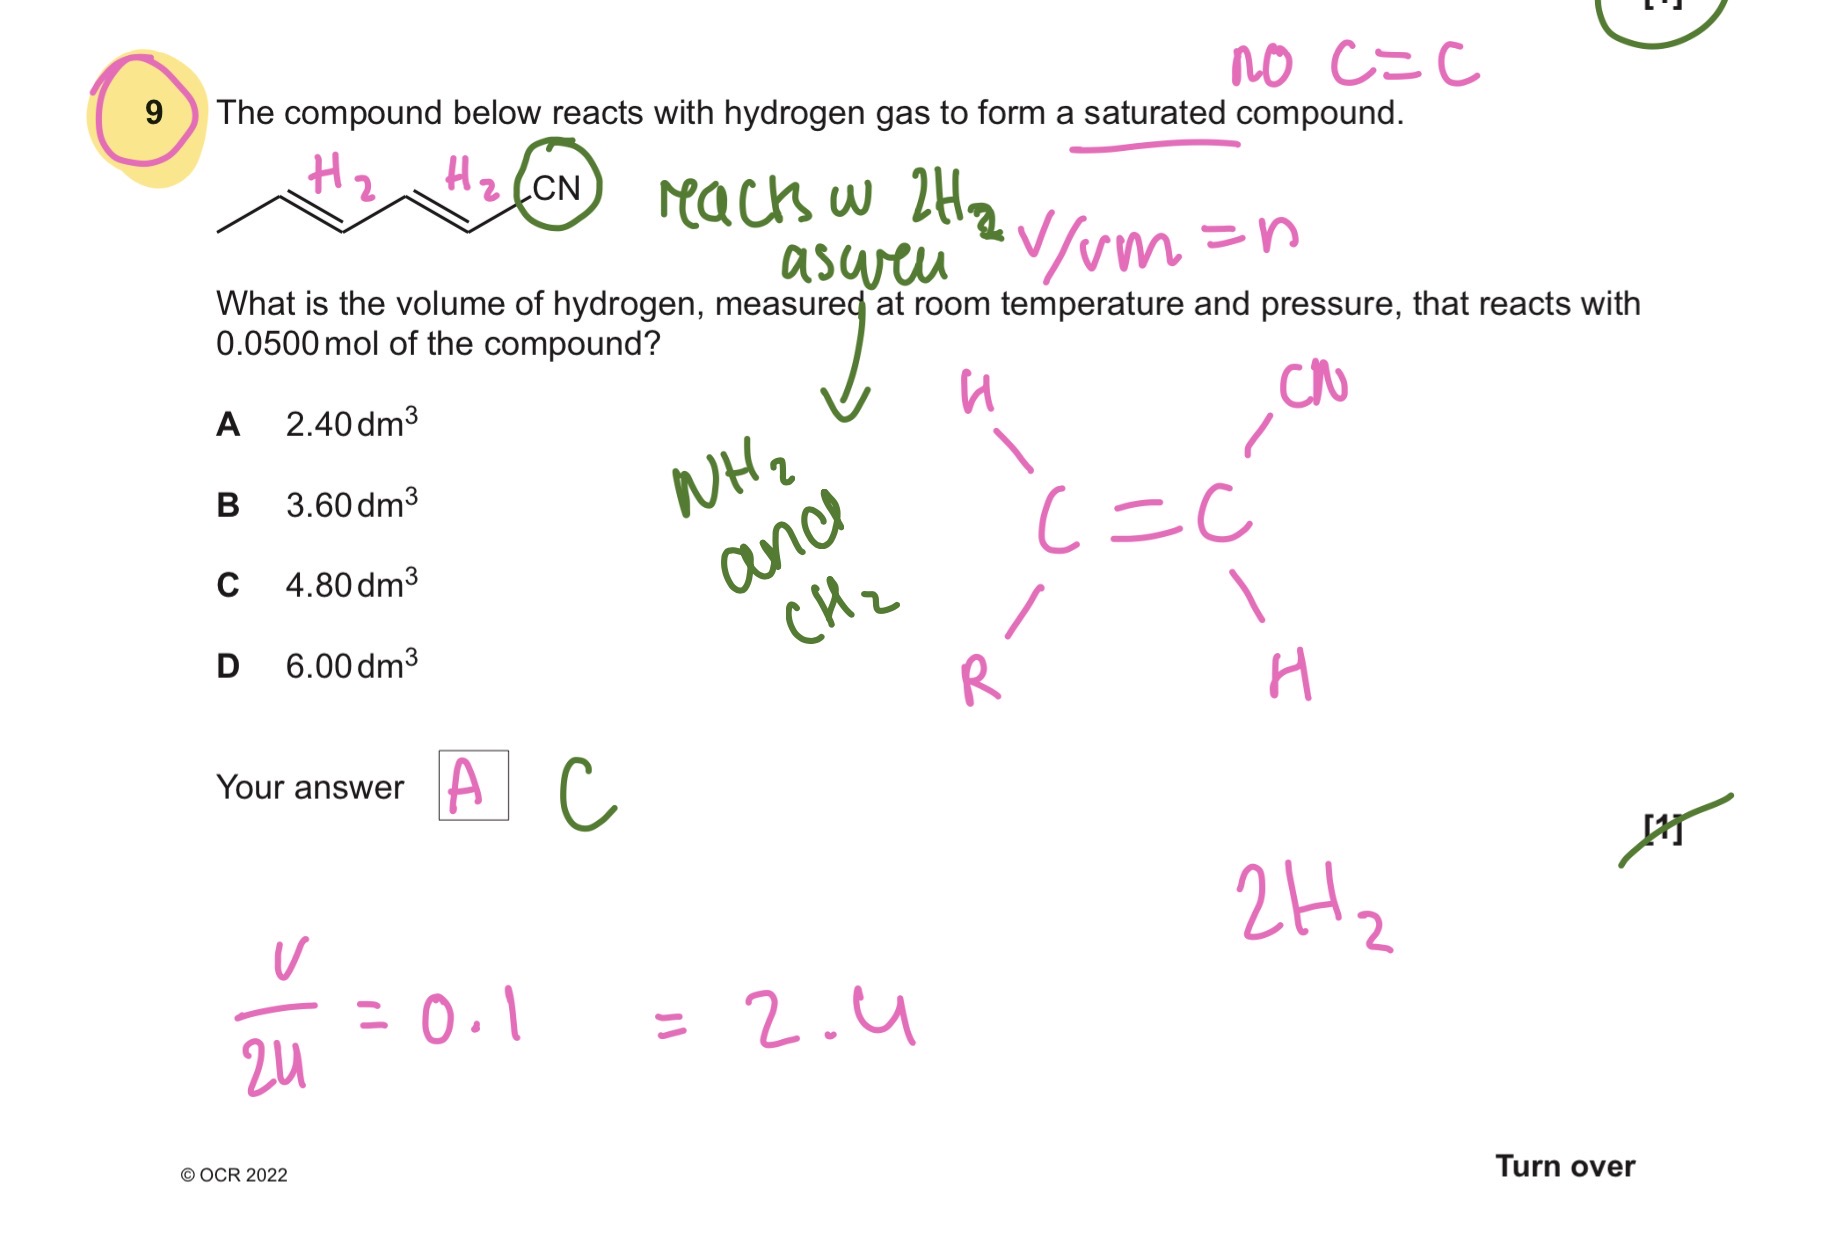 [1]
no C=C
9 The compound below reacts with hydrogen gas to form a saturated compound.
H2 H2 CN
reacts w 2H2
aswell
V/vm = n
What is the volume of hydrogen, measured at room temperature and pressure, that reacts with
0.0500 mol of the compound?
A 2.40 dm³
B 3.60 dm³
C 4.80 dm³
D 6.00 dm³
NH2
and
CH2
H CN
C = C
R H
Your answer A C
[1]
2H2
v/24 = 0.1 = 2.4
© OCR 2022
Turn over